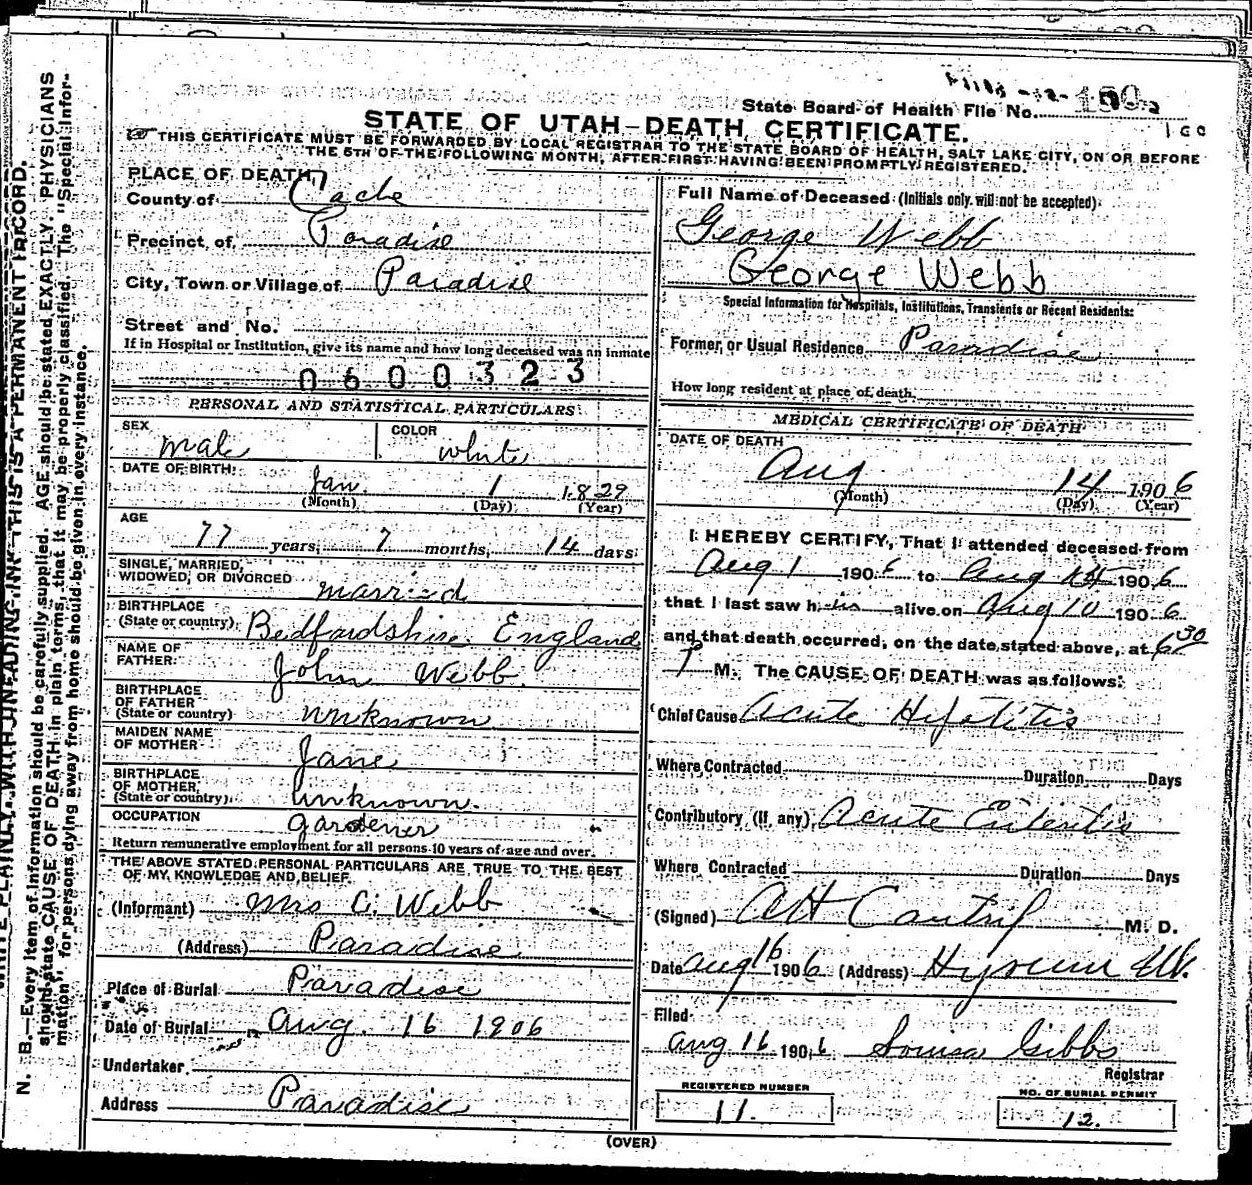 State Board of Health File No.
STATE OF UTAH—DEATH CERTIFICATE.
THIS CERTIFICATE MUST BE FORWARDED BY LOCAL REGISTRAR TO THE STATE BOARD OF HEALTH, SALT LAKE CITY, ON OR BEFORE
THE 5TH OF THE FOLLOWING MONTH, AFTER FIRST HAVING BEEN PROMPTLY REGISTERED.
PLACE OF DEATH
County of Cache
Precinct of Paradise
City, Town or Village of Paradise
Street and No.
If in Hospital or Institution, give its name and how long deceased was an inmate
0600323
PERSONAL AND STATISTICAL PARTICULARS
SEX male COLOR white
DATE OF BIRTH: Jan. 1 1829
(Month) (Day) (Year)
AGE
77 years, 7 months, 14 days
SINGLE, MARRIED,
WIDOWED, OR DIVORCED married
BIRTHPLACE
(State or country) Bedfordshire England
NAME OF
FATHER: John Webb
BIRTHPLACE
OF FATHER
(State or country) unknown
MAIDEN NAME
OF MOTHER Jane
BIRTHPLACE
OF MOTHER,
(State or country) unknown.
OCCUPATION gardener
Return remunerative employment for all persons 10 years of age and over.
THE ABOVE STATED PERSONAL PARTICULARS ARE TRUE TO THE BEST
OF MY KNOWLEDGE AND BELIEF.
(Informant) Mrs C. Webb
(Address) Paradise
Place of Burial Paradise
Date of Burial Aug. 16 1906
Undertaker
Address Paradise
Full Name of Deceased (Initials only will not be accepted)
George Webb
George Webb
Special Information for Hospitals, Institutions, Transients or Recent Residents:
Former or Usual Residence Paradise
How long resident at place of death.
MEDICAL CERTIFICATE OF DEATH
DATE OF DEATH
Aug 14 1906
(Month) (Day) (Year)
I HEREBY CERTIFY, That I attended deceased from
Aug 1 1906 to Aug 1906
that I last saw h is alive on Aug 10 1906
and that death occurred, on the date stated above, at 6 30
P M. The CAUSE OF DEATH was as follows:
Chief Cause Acute Hepatitis
Where Contracted Duration Days
Contributory (If any) Acute Enteritis
Where Contracted Duration Days
(Signed) M. D.
Date Aug 16 1906 (Address)
Filed
Aug 16 1906 Louisa Gibbs
Registrar
REGISTERED NUMBER
11.
NO. OF BURIAL PERMIT
12.
(OVER)
N. B.—Every item of information should be carefully supplied. AGE should be stated EXACTLY. PHYSICIANS
should state CAUSE OF DEATH in plain terms, that it may be properly classified. The "Special Infor-
mation" for persons dying away from home should be given in every instance.